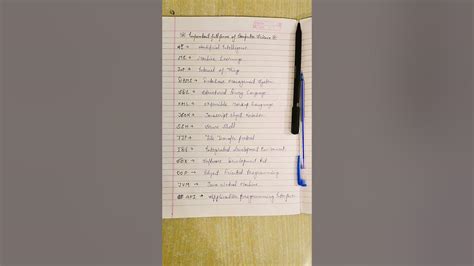 * Important full forms of Computer Science *
AI → Artificial Intelligence
ML → Machine Learning
IoT → Internet of Things
DBMS → Database Management System
SQL → Structured Query Language
XML → Extensible Markup Language
JSON → Javascript Object Notation
SSH → Secure Shell
FTP → File Transfer protocol
IDE → Integrated Development Environment
SDK → Software Development Kit
OOP → Object Oriented Programming
JVM → Java Virtual Machine
API → Application Programming Interface